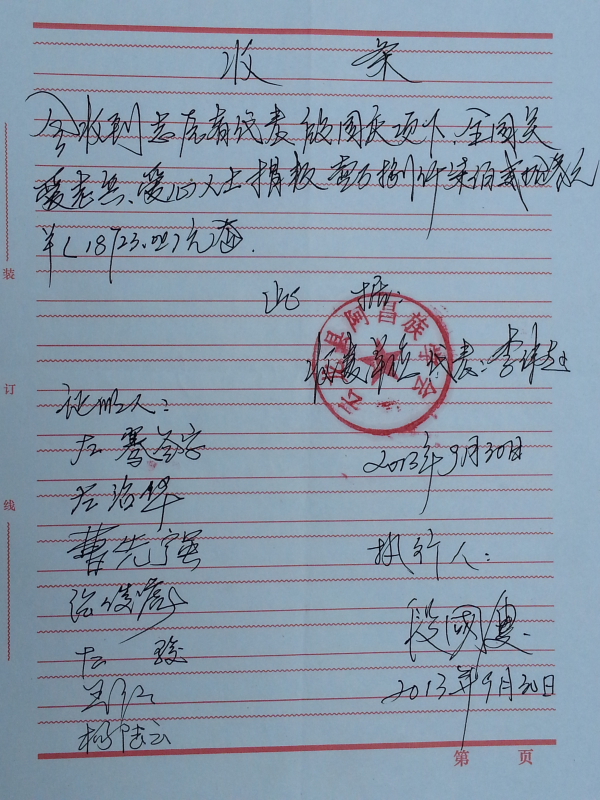 收 条
今收到 志愿者代表 段国庆项下、全国关
爱老兵、爱心人士捐款 壹万捌仟柒佰贰拾叁元
¥(18723.00)元整.
此 据.
云龙县阿昌族学会
收款单位代表：李
证明人：
左
2013年9月30日
左治华
曹先强
执行人：
左 骏
段國
2013年9月30日
杨陆云
装
订
线
第 页